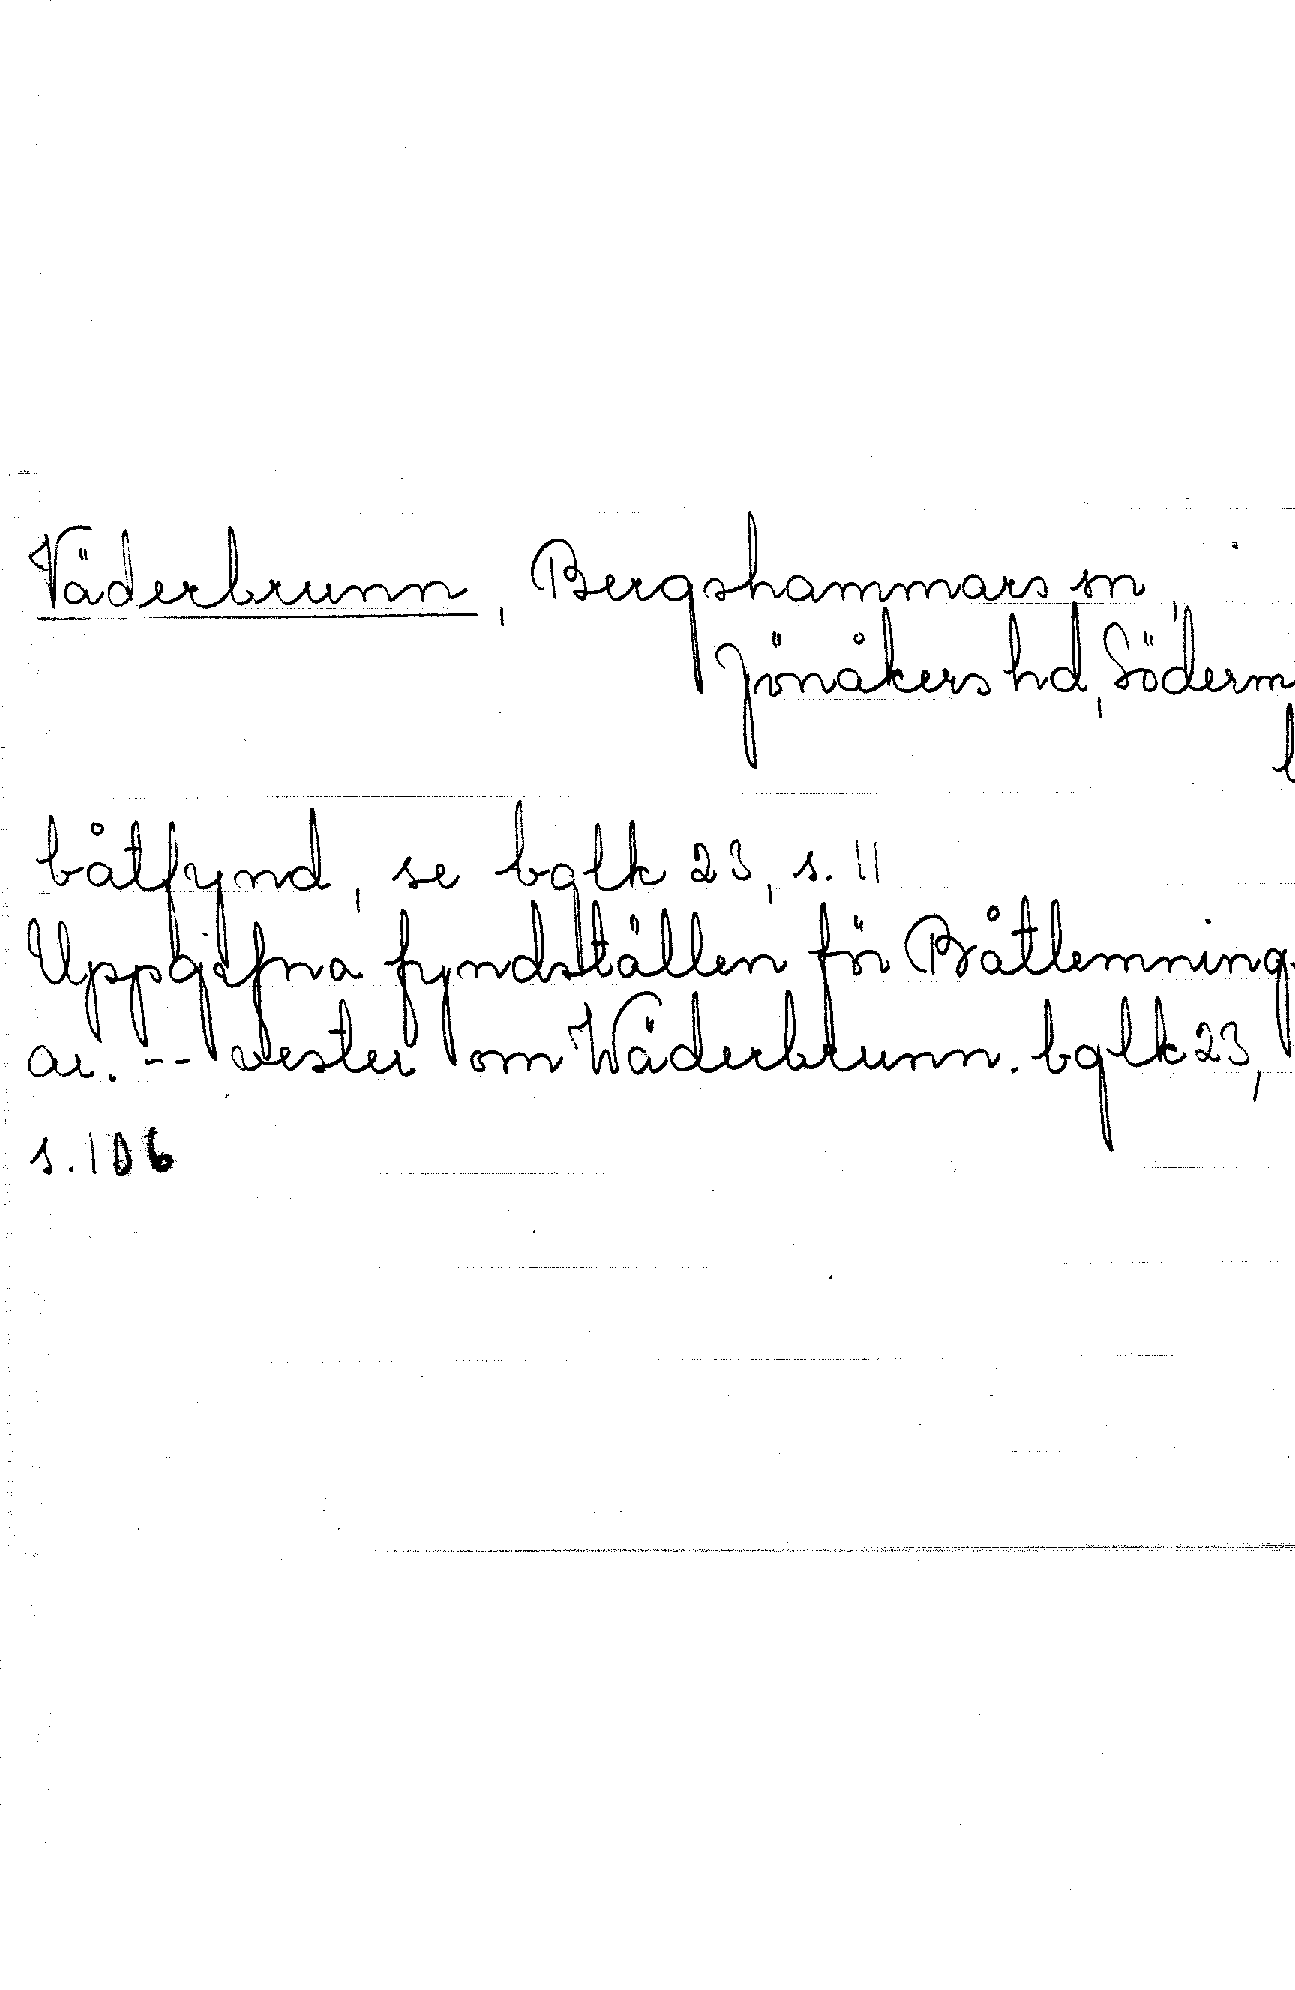 Väderbrunn, Bergshammars sn,
Jönåkers hd, Söderm
l
båtfynd, se bglk 23, s. 11
Uppgifna fyndställen för Båtlemning
ar. -- vester om Wäderbrunn. bglk 23,
s. 106